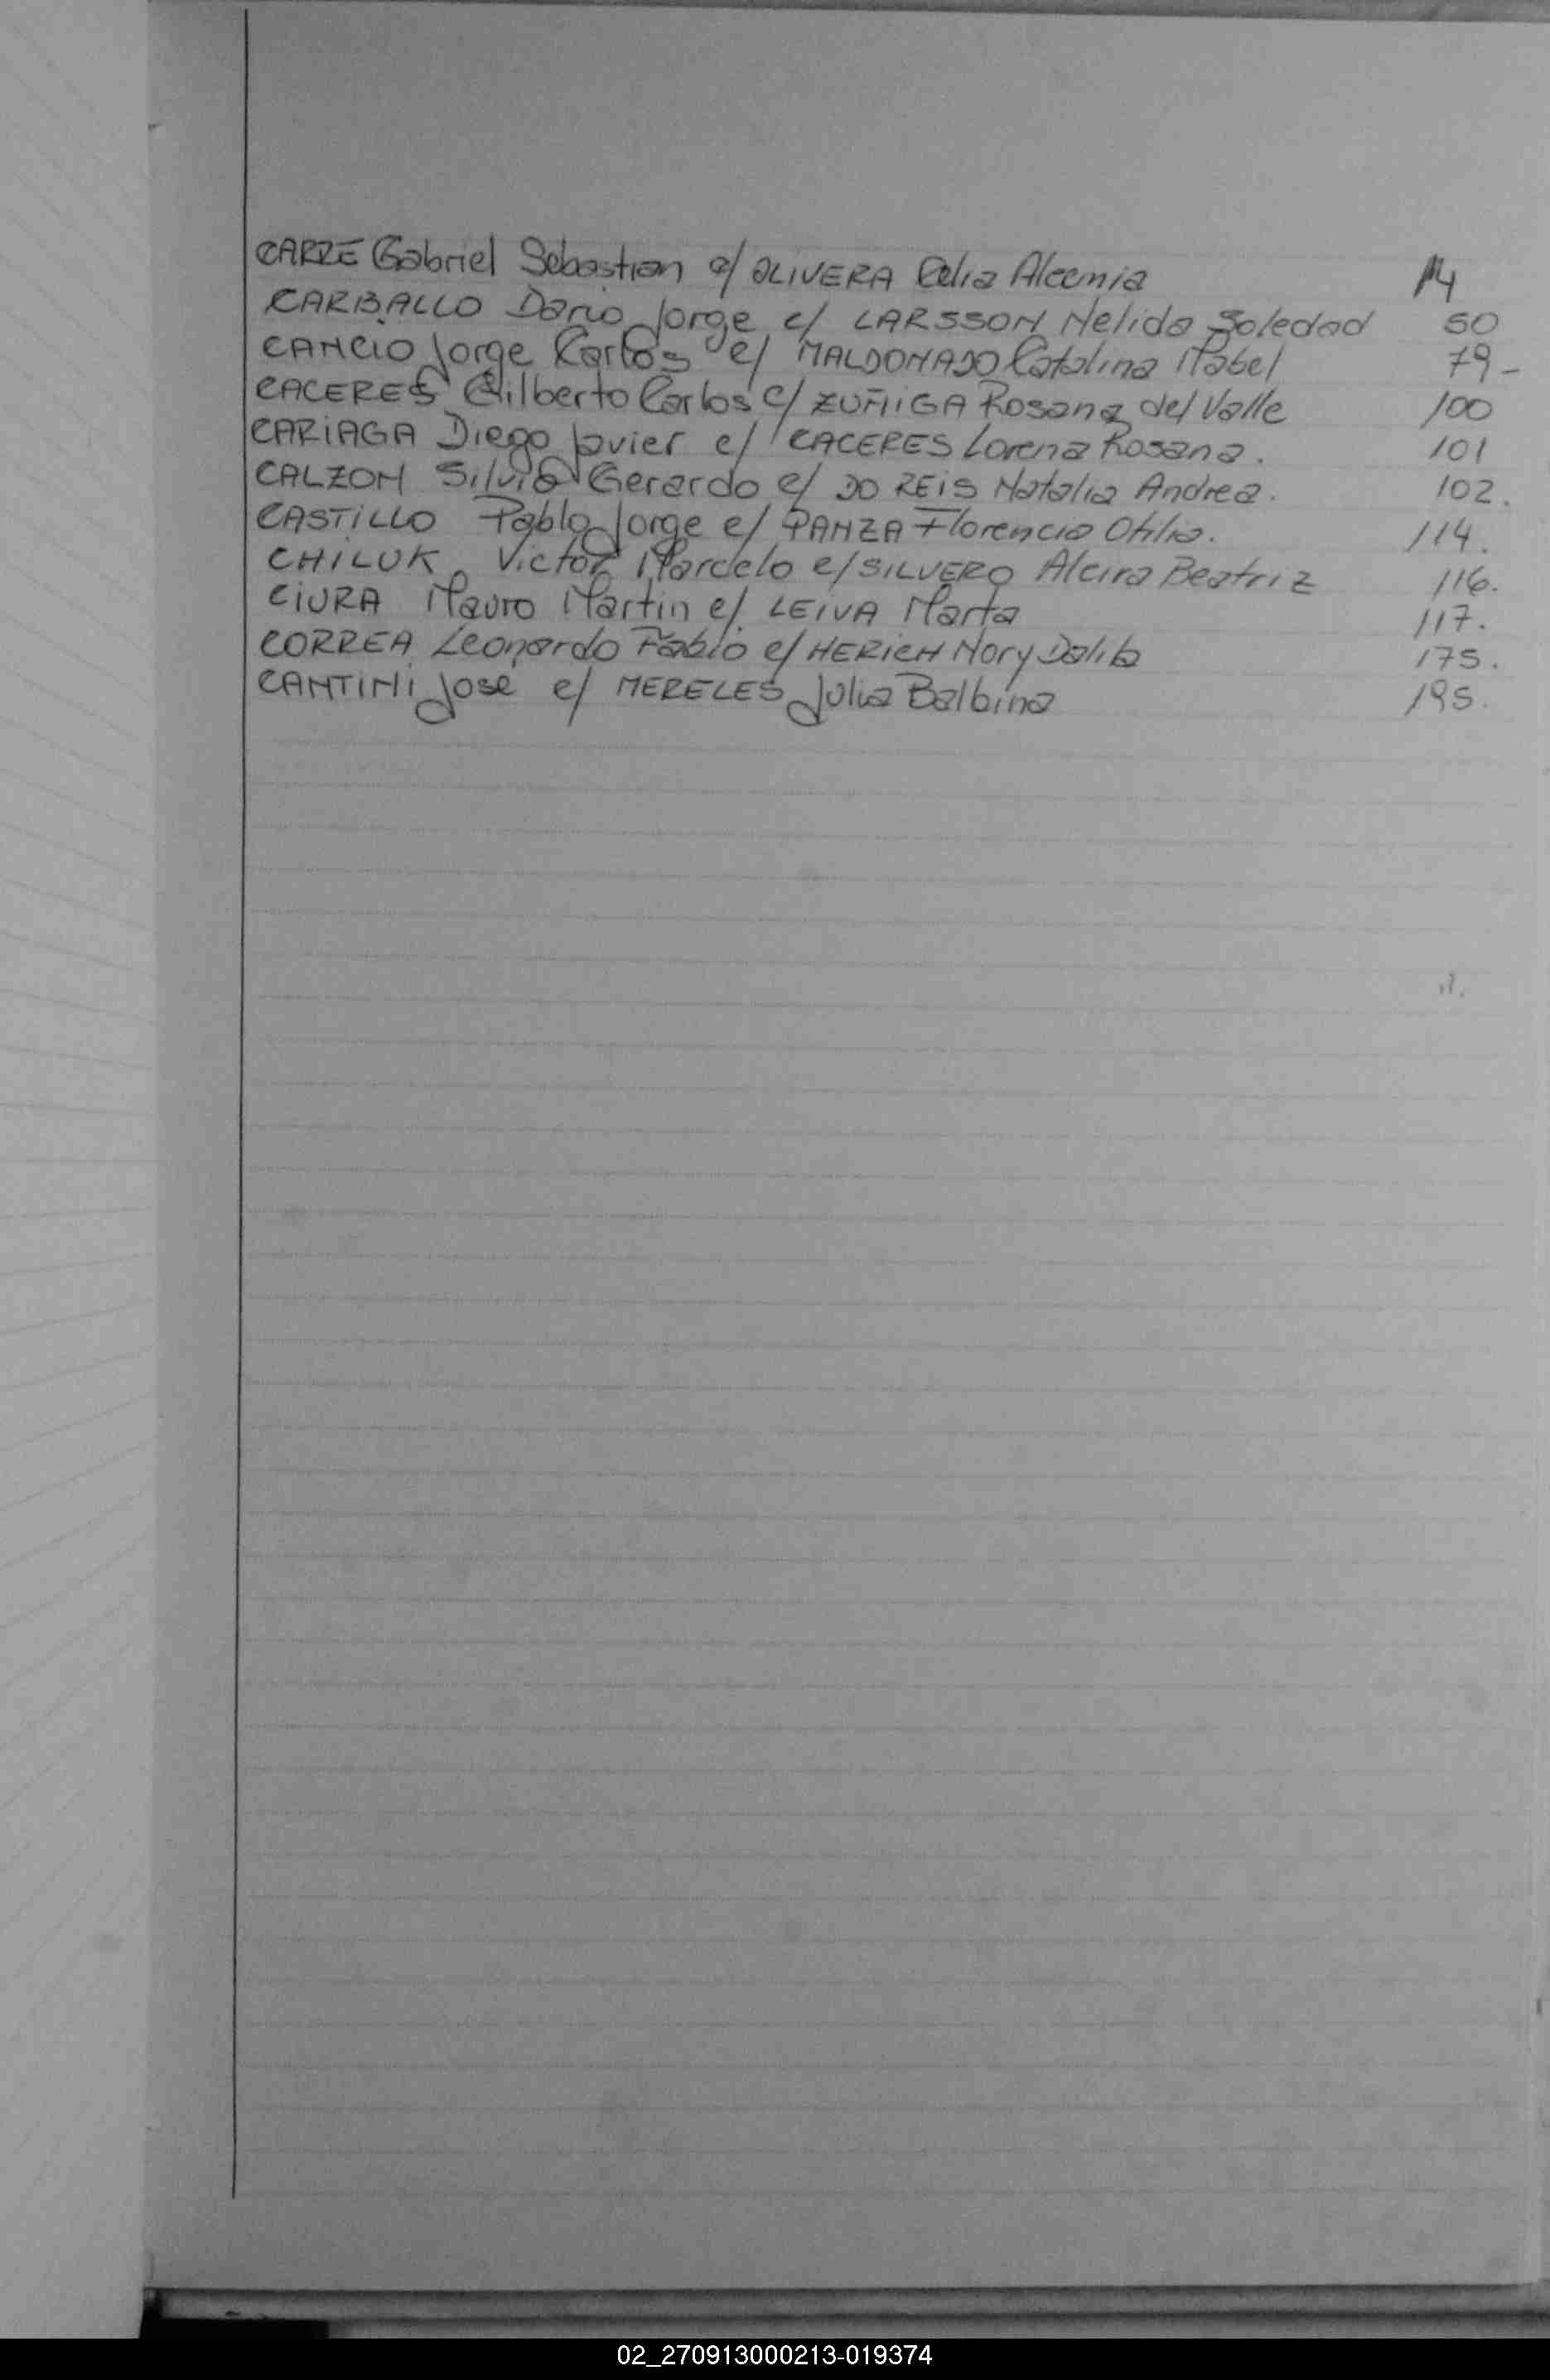 CARRE Gabriel Sebastian c/ OLIVERA Celia Alcemia 14
CARBALLO Dario Jorge c/ LARSSON Nelida Soledad 50
CANCIO Jorge Carlos c/ MALDONADO Catalina Mabel 79-
CACERES Gilberto Carlos c/ ZUÑIGA Rosana del Valle 100
CARIAGA Diego Javier c/ CACERES Lorena Rosana. 101
CALZON Silvio Gerardo c/ DO REIS Natalia Andrea. 102.
CASTILLO Pablo Jorge c/ PANZA Florencia Otilia. 114.
CHILUK Victor Marcelo c/ SILVERO Alcira Beatriz 116.
CIURA Mauro Martin c/ LEIVA Marta 117.
CORREA Leonardo Fabio c/ Nory 175.
CANTINI Jose c/ MERELES Julia Balbina 195.
02_270913000213-019374